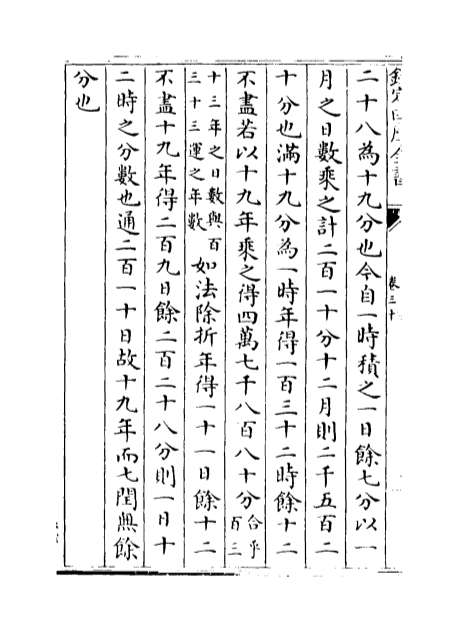 欽定四庫全書
卷三十
二十八為十九分也今自一時積之一日餘七分以一
月之日數乘之計二百一十分十二月則二千五百二
十分也滿十九分為一時年得一百三十二時餘十二
不盡若以十九年乘之得四萬七千八百八十分合乎百三
十三年之日數與百三十三運之年數如法除折年得一十一日餘十二
不盡十九年得二百九日餘二百二十八分則一日十
二時之分數也通二百一十日故十九年而七閏無餘
分也